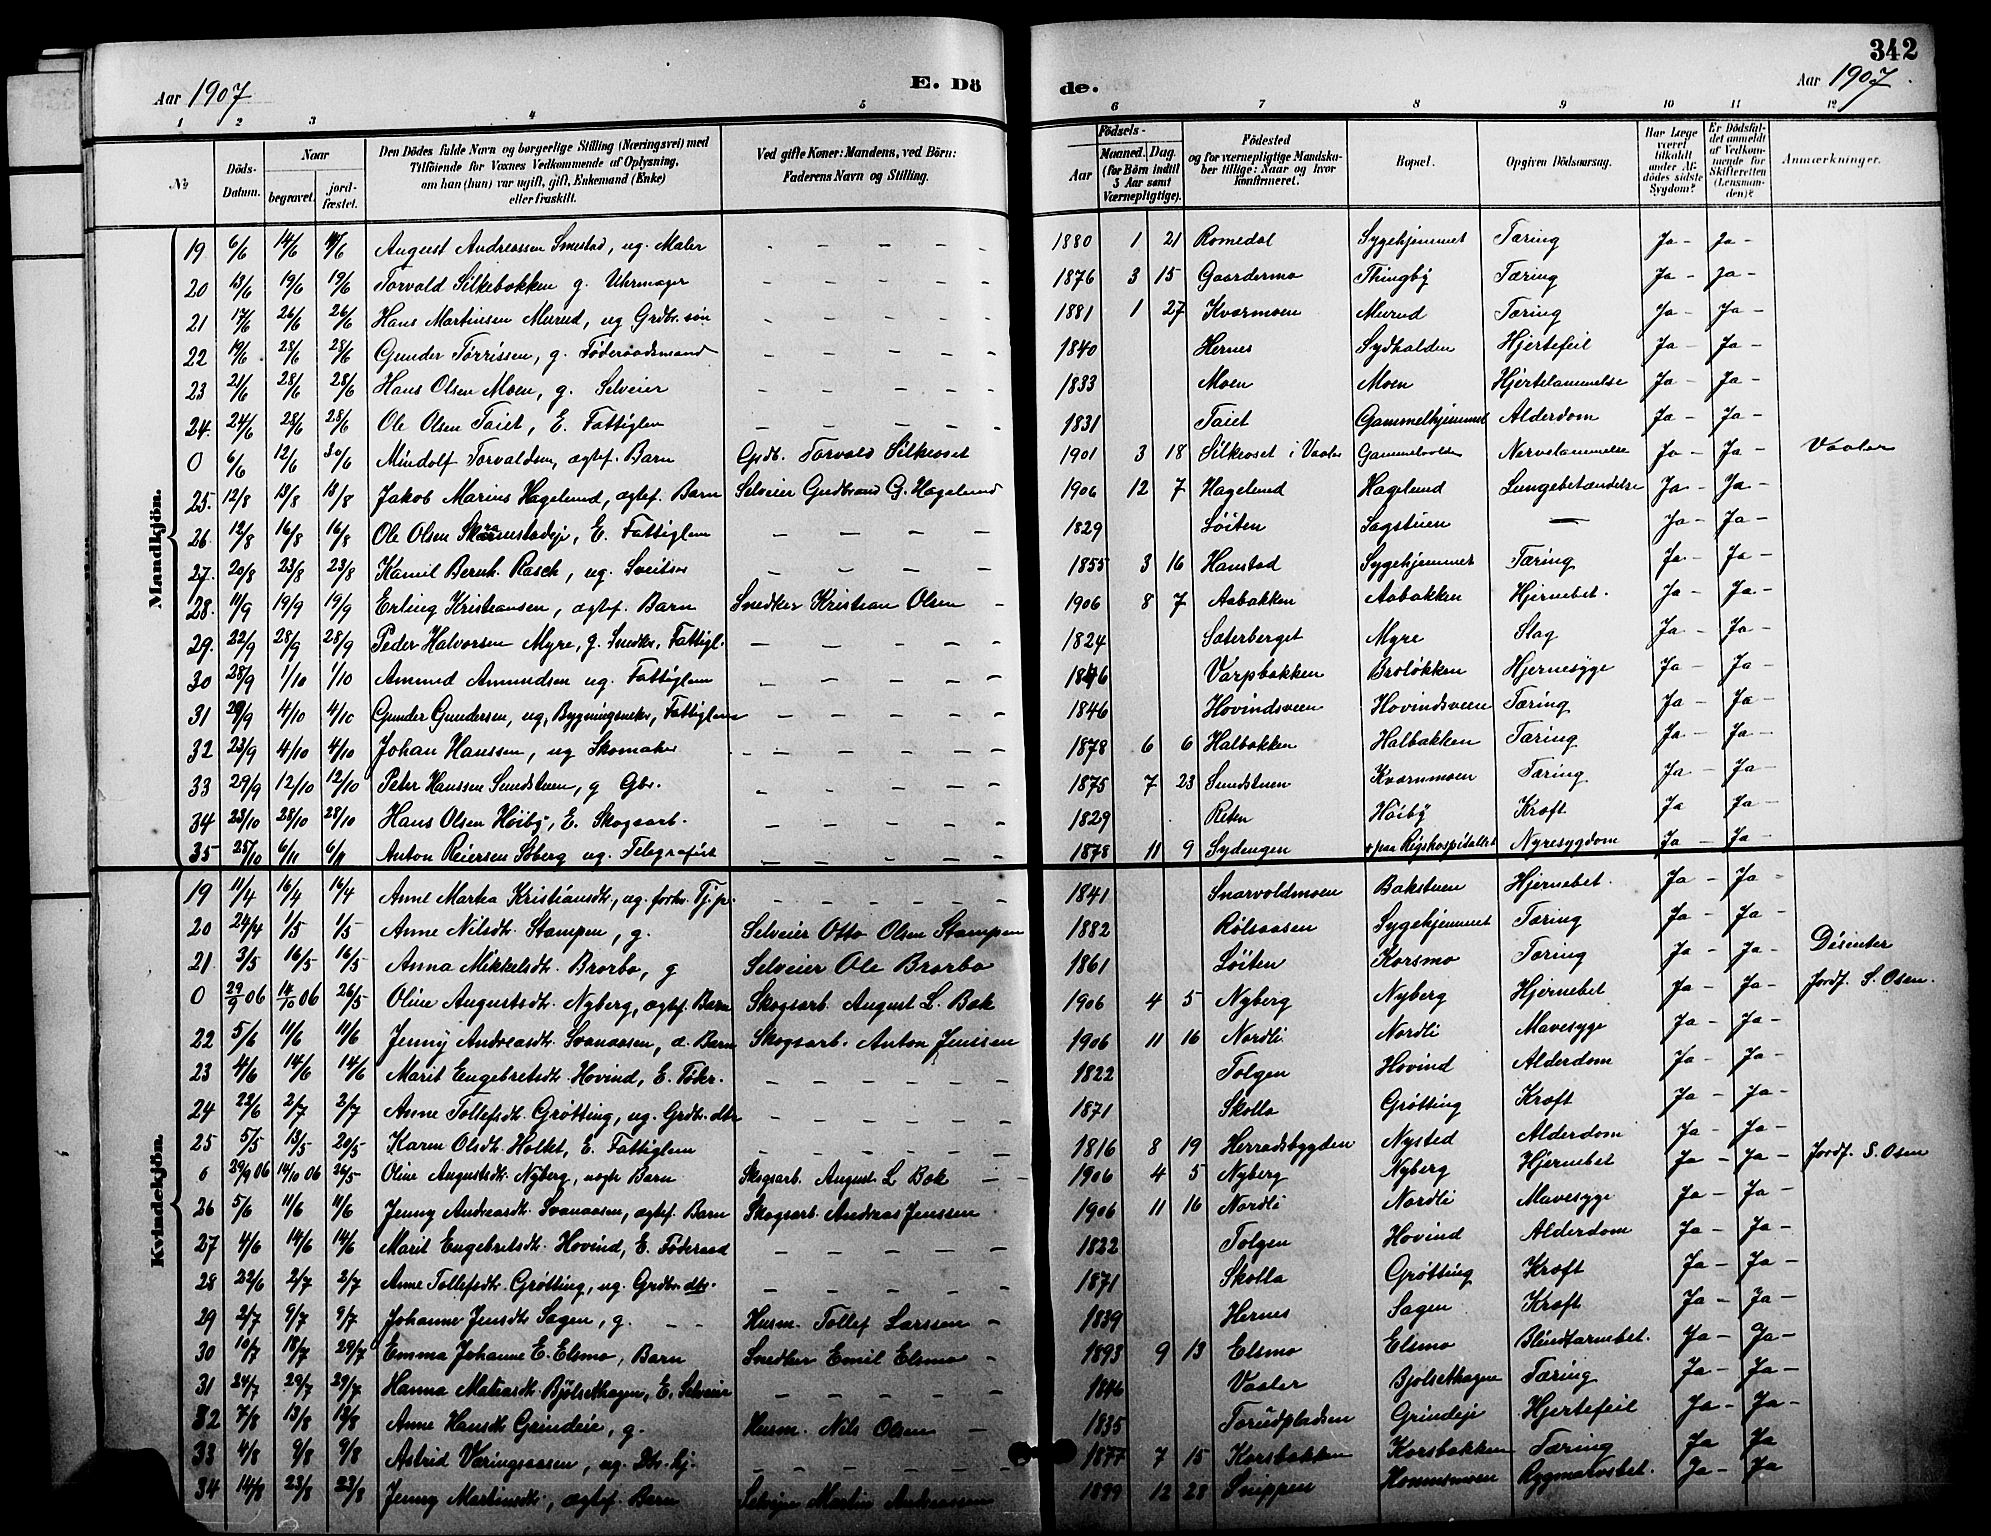 342
Aar 1907
E. Dö
de.
Aar 1907.
1 2 3 4 5 6 7 8 9 10 11 12
№
Döds-Datum.
Naar
begravet.
jord-fæstet.
Den Dödes fulde Navn og borgerlige Stilling (Næringsvei) med
Tilföiende for Voxnes Vedkommende af Oplysning,
om han (hun) var ugift, gift, Enkemand (Enke)
eller fraskilt.
Ved gifte Koner: Mandens, ved Börn:
Faderens Navn og Stilling.
Födsels-
Aar
Maaned. Dag.
(for Börn indtil
5 Aar samt
Værnepligtige).
Födested
og for værnepligtige Mandska-
ber tillige: Naar og hvor
konfirmeret.
Bopæl.
Opgiven Dödsaarsag.
Har Læge
været
tilkaldt
under Af-
dödes sidste
Sygdom?
Er Dödsfal-
det anmeldt
af Vedkom-
mende for
Skifteretten
(Lensman-
den)?
Anmærkninger.
Mandkjön.
19 6/6 14/6 14/6 August Andreassen Smestad, ug. Maler - - - - - 1880 1 21 Romedal Sygehjemmet Tæring Ja - Ja -
20 13/6 19/6 19/6 Torvald Silkebakken g. Uhrmager - - - - - 1876 3 15 Gaardermo Thingby Tæring Ja - Ja -
21 17/6 26/6 26/6 Hans Martinsen Murud, ug Grdbr. søn - - - - - 1881 1 27 Kvarmoen Murud Tæring Ja - Ja -
22 19/6 28/6 28/6 Gunder Tørrissen, g. Føderaadsmand - - - - - 1840 Hernes Sydhalden Hjertefeil Ja - Ja -
23 21/6 28/6 28/6 Hans Olsen Moen, g. Selveier - - - - - 1833 Moen Moen Hjertelammelse Ja - Ja -
24. 24/6 28/6 28/6 Ole Olsen Taiet, E. Fattiglem - - - - - 1831 Taiet Gammelhjemmet Alderdom Ja - Ja -
0 6/6 12/6 30/6 Mindolf Torvaldsen, ægtef. Barn Grdb. Torvald Silkeoset 1901 3 18 Silkeoset i Vaaler Nervelammelse Ja - Ja - Vaaler
25. 12/8 13/8 13/8 Jakob Marius Hagelund, ægtef. Barn Selveier Gudbrand G. Hagelund 1906 12 7 Hagelund Hagelund Lungebetændelse Ja - Ja -
26 12/8 16/8 16/8 Ole Olsen E. Fattiglem - - - - - 1829 Løiten Sagstuen — Ja - Ja -
27. 20/8 23/8 23/8 Kamil Bernh. Rasch, ug. Sveitser - - - - - 1855 3 16 Hanstad Sygehjemmet Tæring Ja - Ja -
28. 11/9 19/9 19/9 Erling Kristiansen, ægtef. Barn Snedker Kristian Olsen - 1906 8 7 Aabakken Aabakken Hjernebet. Ja - Ja -
29. 22/9 28/9 28/9 Peder Halvorsen Myre, g. Snedker, Fattigl. - - - - - 1824 Sæterberget Myre Slag Ja - Ja -
30 28/9 1/10 1/10 Ammund Amundsen ug. Fattiglem - - - - - 1846 Varpbakken Broløkken Hjernesyge Ja - Ja -
31 29/9 4/10 4/10 Gunder Gundersen, ug, Bygningssnekr, Fattiglem - - - - - 1846 Hovindsveen Hovindsveen Tæring Ja - Ja -
32 23/9 4/10 4/10 Johan Hanssen, ug Skomaker - - - - - 1878 6 6 Halbakken Halbakken Tæring Ja - Ja -
33 29/9 12/10 12/10 Peter Hanssen Sundstuen, g Gbr. - - - - - 1875 7 23 Sundstuen Kvarnmoen Tæring Ja - Ja -
34 23/10 28/10 28/10 Hans Olsen Høiby, E. Skogsarb. - - - - - 1829 Reten Høiby Kræft Ja Ja -
35 25/10 6/11 6/11 Anton Reiersen Søberg ug. Telegrafist - - - - - 1878 11 9 Sydengen paa Rigshospitallet Nyresygdom Ja - Ja -
Kvindekjön.
19 11/4 16/4 16/4 Anne Marka Kristiansdtr., ug. forhv. Tj. p. - - - - - 1841 Snarvoldmoen Bakstuen Hjernebet. Ja - Ja -
20 24/4 1/5 1/5 Anne Nilsdtr. Stampen, g. Selveier Otto Olsen Stampen 1882 Rølsaasen Sygehjemmet Tæring Ja - Ja -
21 3/5 16/5 16/5 Anna Mikkelsdtr. Brorbo, g Selveier Ole Brorbo 1861 Løiten Korsmo Tæring Ja - Ja - Disinter
0 29/9 06 14/10 06 26/5 Oline Augustsdtr. Nyberg, ægtef. Barn Skogsarb. August L. Bak 1906 4 5 Nyberg Nyberg Hjernebet Ja - Ja - Jordf. S. Osen.
22 5/6 11/6 11/6 Jenny Andreasdtr. Svanaasen, æ. Barn Skogsarb. Anton Jenssen 1906 11 16 Nordli Nordli Mavesyge Ja - Ja -
23 4/6 14/6 14/6 Marit Engebretsdtr. Hovind, E. Føder. - - - - - 1822 Tolgen Hovind Alderdom Ja - Ja -
24 22/6 2/7 2/7 Anne Tollefsdtr. Grøtting, ug. Grdbr. dtr - - - - - 1871 Skolla Grøtting Kræft Ja - Ja -
25 5/5 13/5 20/5 Karen Olsdtr. Holtet, E. Fattiglem - - - - - 1816 8 19 Herradsbygden Nysted Alderdom Ja - Ja -
0 29/9 06 14/10 06 26/5 Oline Augustsdtr. Nyberg, Barn Skogsarb. August L Bak - - 1906 4 5 Nyberg Nyberg Hjernebet Ja - Ja - Jordf. S. Osen
26 5/6 11/6 11/6 Jenny Andreasdtr. Svanaasen, ægtef. Barn Skogsarb. Andreas Jenssen 1906 11 16 Nordli Nordli Mavesyge Ja - Ja -
27 4/6 14/6 14/6 Marit Engebretsdtr. Hovind, E. Føderaad - - - - - 1822 Tolgen Hovind Alderdom Ja - Ja -
28 22/6 2/7 2/7 Anne Tollefsdtr. Grøtting, ug. Grdbr. dtr. - - - - - 1871 Skolla Grøtting Kræft Ja - Ja -
29 2/7 9/7 9/7 Johanne Jensdtr Sagen, g. - - Husm. Tollef Larssen - 1839 Hernes Sagen Kræft Ja - Ja -
30 10/7 18/7 29/7 Emma Johanne E. Elsmo, Barn Snedker Emil Elsmo - 1893 9 13 Elsmo Elsmo Blindtarmbet. Ja - Ja -
31 24/7 29/7 29/7 Hanna Matiasdtr. Bjølsethagen, E. Selveier - - - - - 1846 Vaaler Bjølsethagen Tæring Ja - Ja -
32 7/8 13/8 13/8 Anne Hansdtr Grindeie, g. Husm. Nils Olsen - 1835 Torudpladsen Grindeje Hjertefeil Ja - Ja -
33 4/8 9/8 9/8 Astrid Væringsaasen, ug. Dtr. hj. - - - - - 1877 7 15 Korsbakken Korsbakken Tæring Ja Ja
34 14/8 23/8 23/8 Jenny Martinsdtr., ægtef. Barn Selvejer Martin Andreassen 1899 12 28 Snippen Rygmarvsbet. Ja - Ja